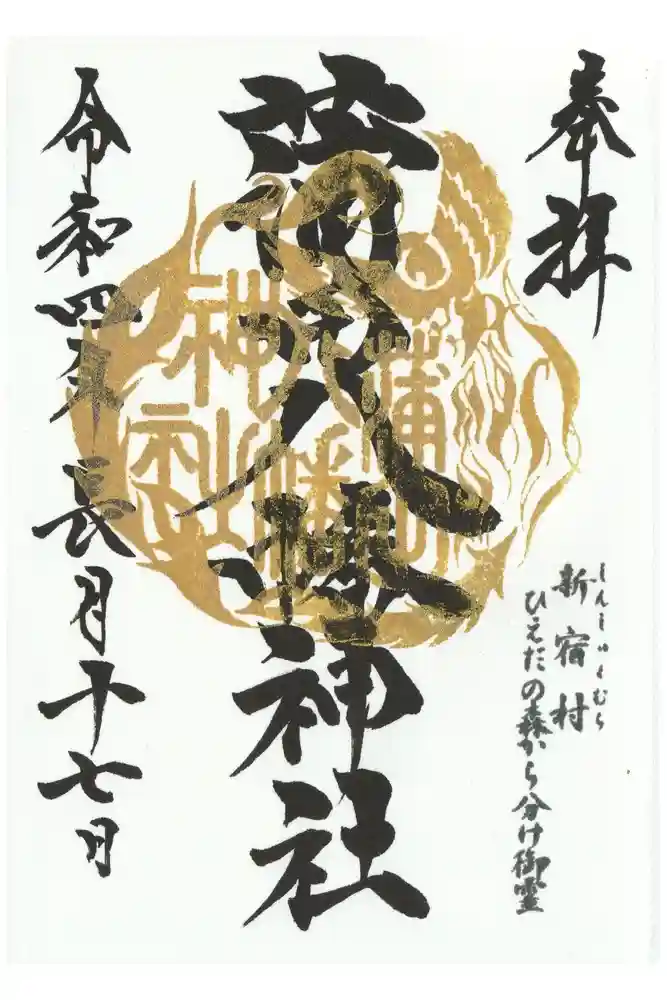 奉拝
しんしゅくむら
新宿村
ひえだの森から分け御霊
蒲田八幡神社
蒲田
八幡
神社
令和四年長月十七日